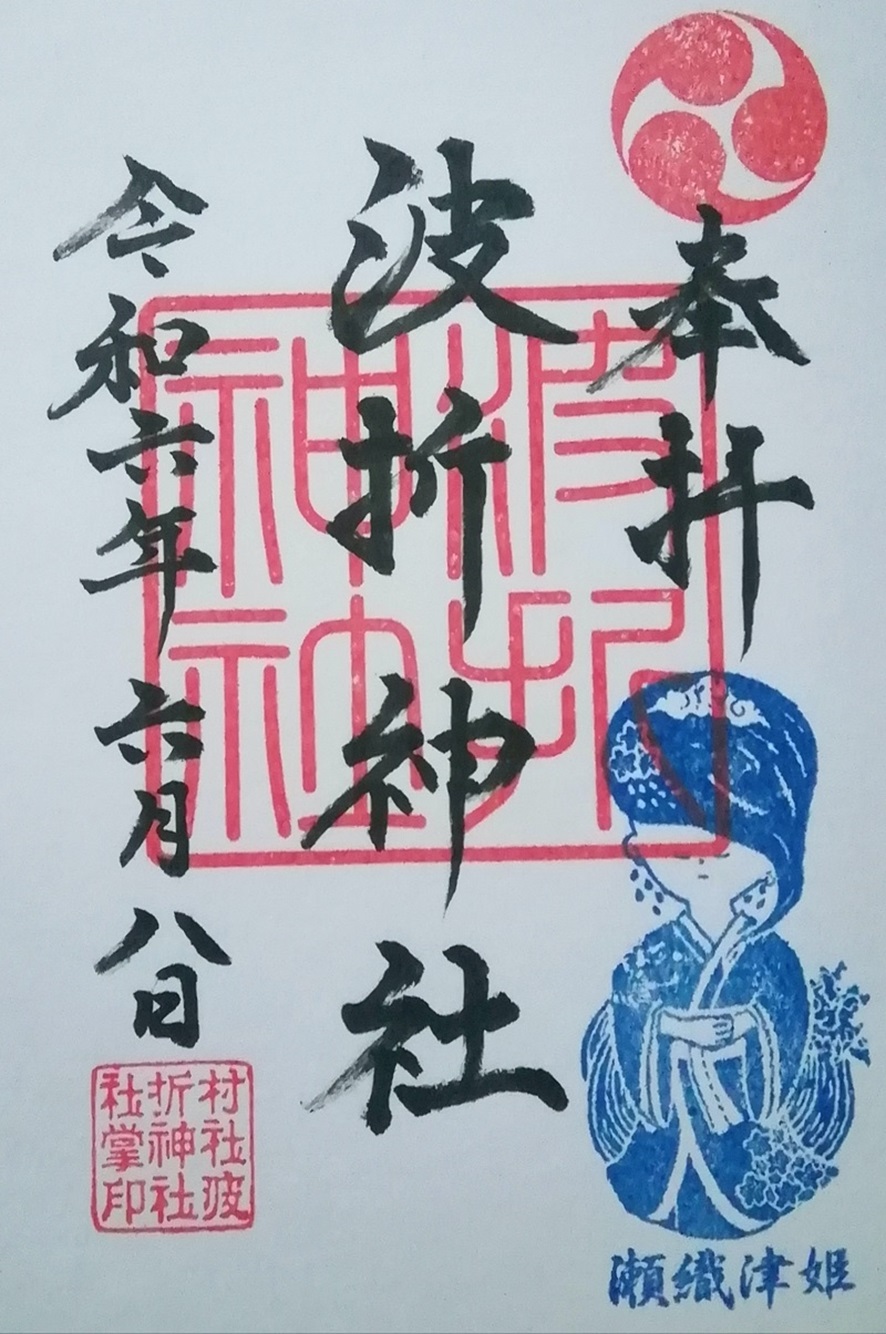 奉拝
波折神社
令和六年六月八日
波折
神社
村社波
折神社
社掌印
瀬織津姫